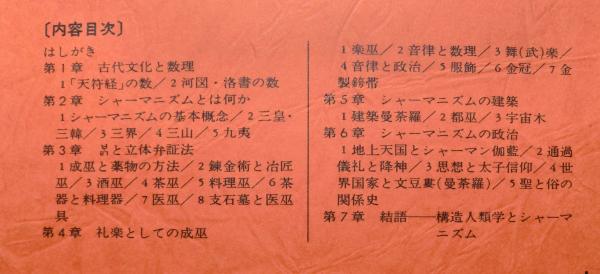 〔内容目次〕
はしがき
第1章　古代文化と数理
1「天符経」の数／2河図・洛書の数
第2章　シャーマニズムとは何か
1シャーマニズムの基本概念／2三皇・
三韓／3三界／4三山／5九夷
第3章　と立体弁証法
1成巫と薬物の方法／2錬金術と冶匠
巫／3酒巫／4茶巫／5料理巫／6茶
器と料理器／7医巫／8支石墓と医巫
具
第4章　礼楽としての成巫
1楽巫／2音律と数理／3舞(武)楽／
4音律と政治／5服飾／6金冠／7金
製銙帯
第5章　シャーマニズムの建築
1建築曼荼羅／2都巫／3宇宙木
第6章　シャーマニズムの政治
1地上天国とシャーマン伽藍／2通過
儀礼と降神／3思想と太子信仰／4世
界国家と文豆婁(曼荼羅)／5聖と俗の
関係史
第7章　結語――構造人類学とシャーマ
ニズム